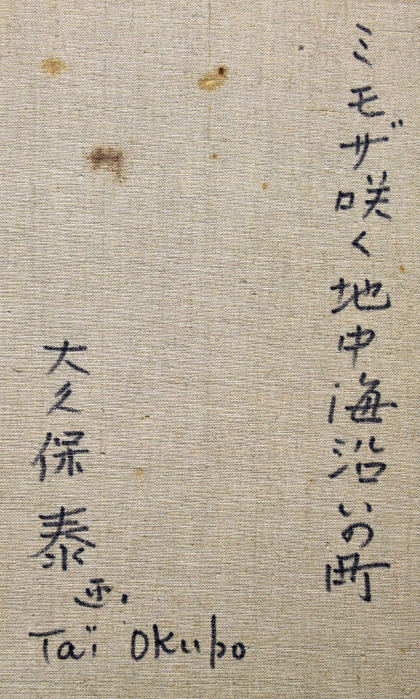 ミモザ咲く地中海沿いの町
大久保泰
画.
Taï Okubo